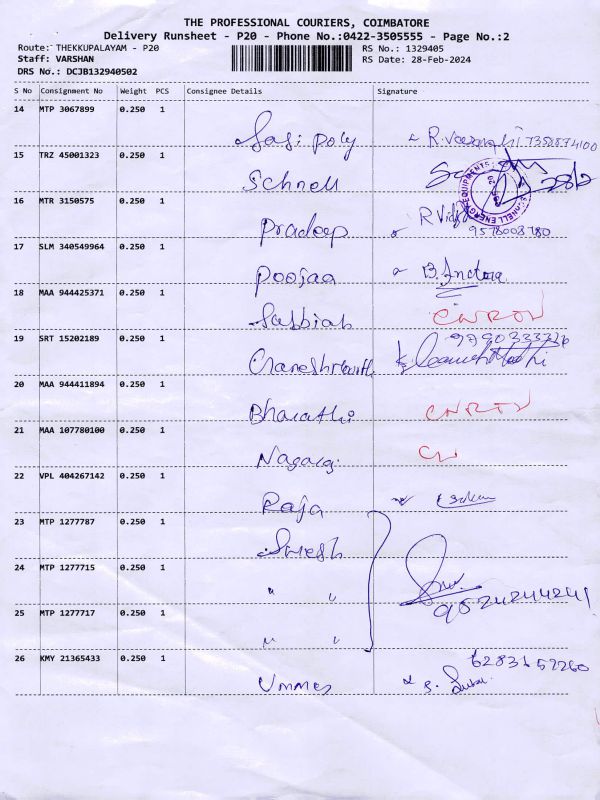 THE PROFESSIONAL COURIERS, COIMBATORE
Delivery Runsheet - P20 - Phone No.:0422-3505555 - Page No.:2
Route: THEKKUPALAYAM - P20 RS No.: 1329405
Staff: VARSHAN RS Date: 28-Feb-2024
DRS No.: DCJB132940502
S No Consignment No Weight PCS Consignee Details Signature
14 MTP 3067899 0.250 1
Sasi poly
15 TRZ 45001323 0.250 1
Schnell
16 MTR 3150575 0.250 1
Pradeep 9578008780
17 SLM 340549964 0.250 1
Poojaa
18 MAA 944425371 0.250 1
Subbiah CNROV
19 SRT 15202189 0.250 1
20 MAA 944411894 0.250 1
Bharathi CNROV
21 MAA 107780100 0.250 1
Nagaraj CN
22 VPL 404267142 0.250 1
Raja
23 MTP 1277787 0.250 1
Suresh
24 MTP 1277715 0.250 1
" "
25 MTP 1277717 0.250 1
" "
26 KMY 21365433 0.250 1
Ummer